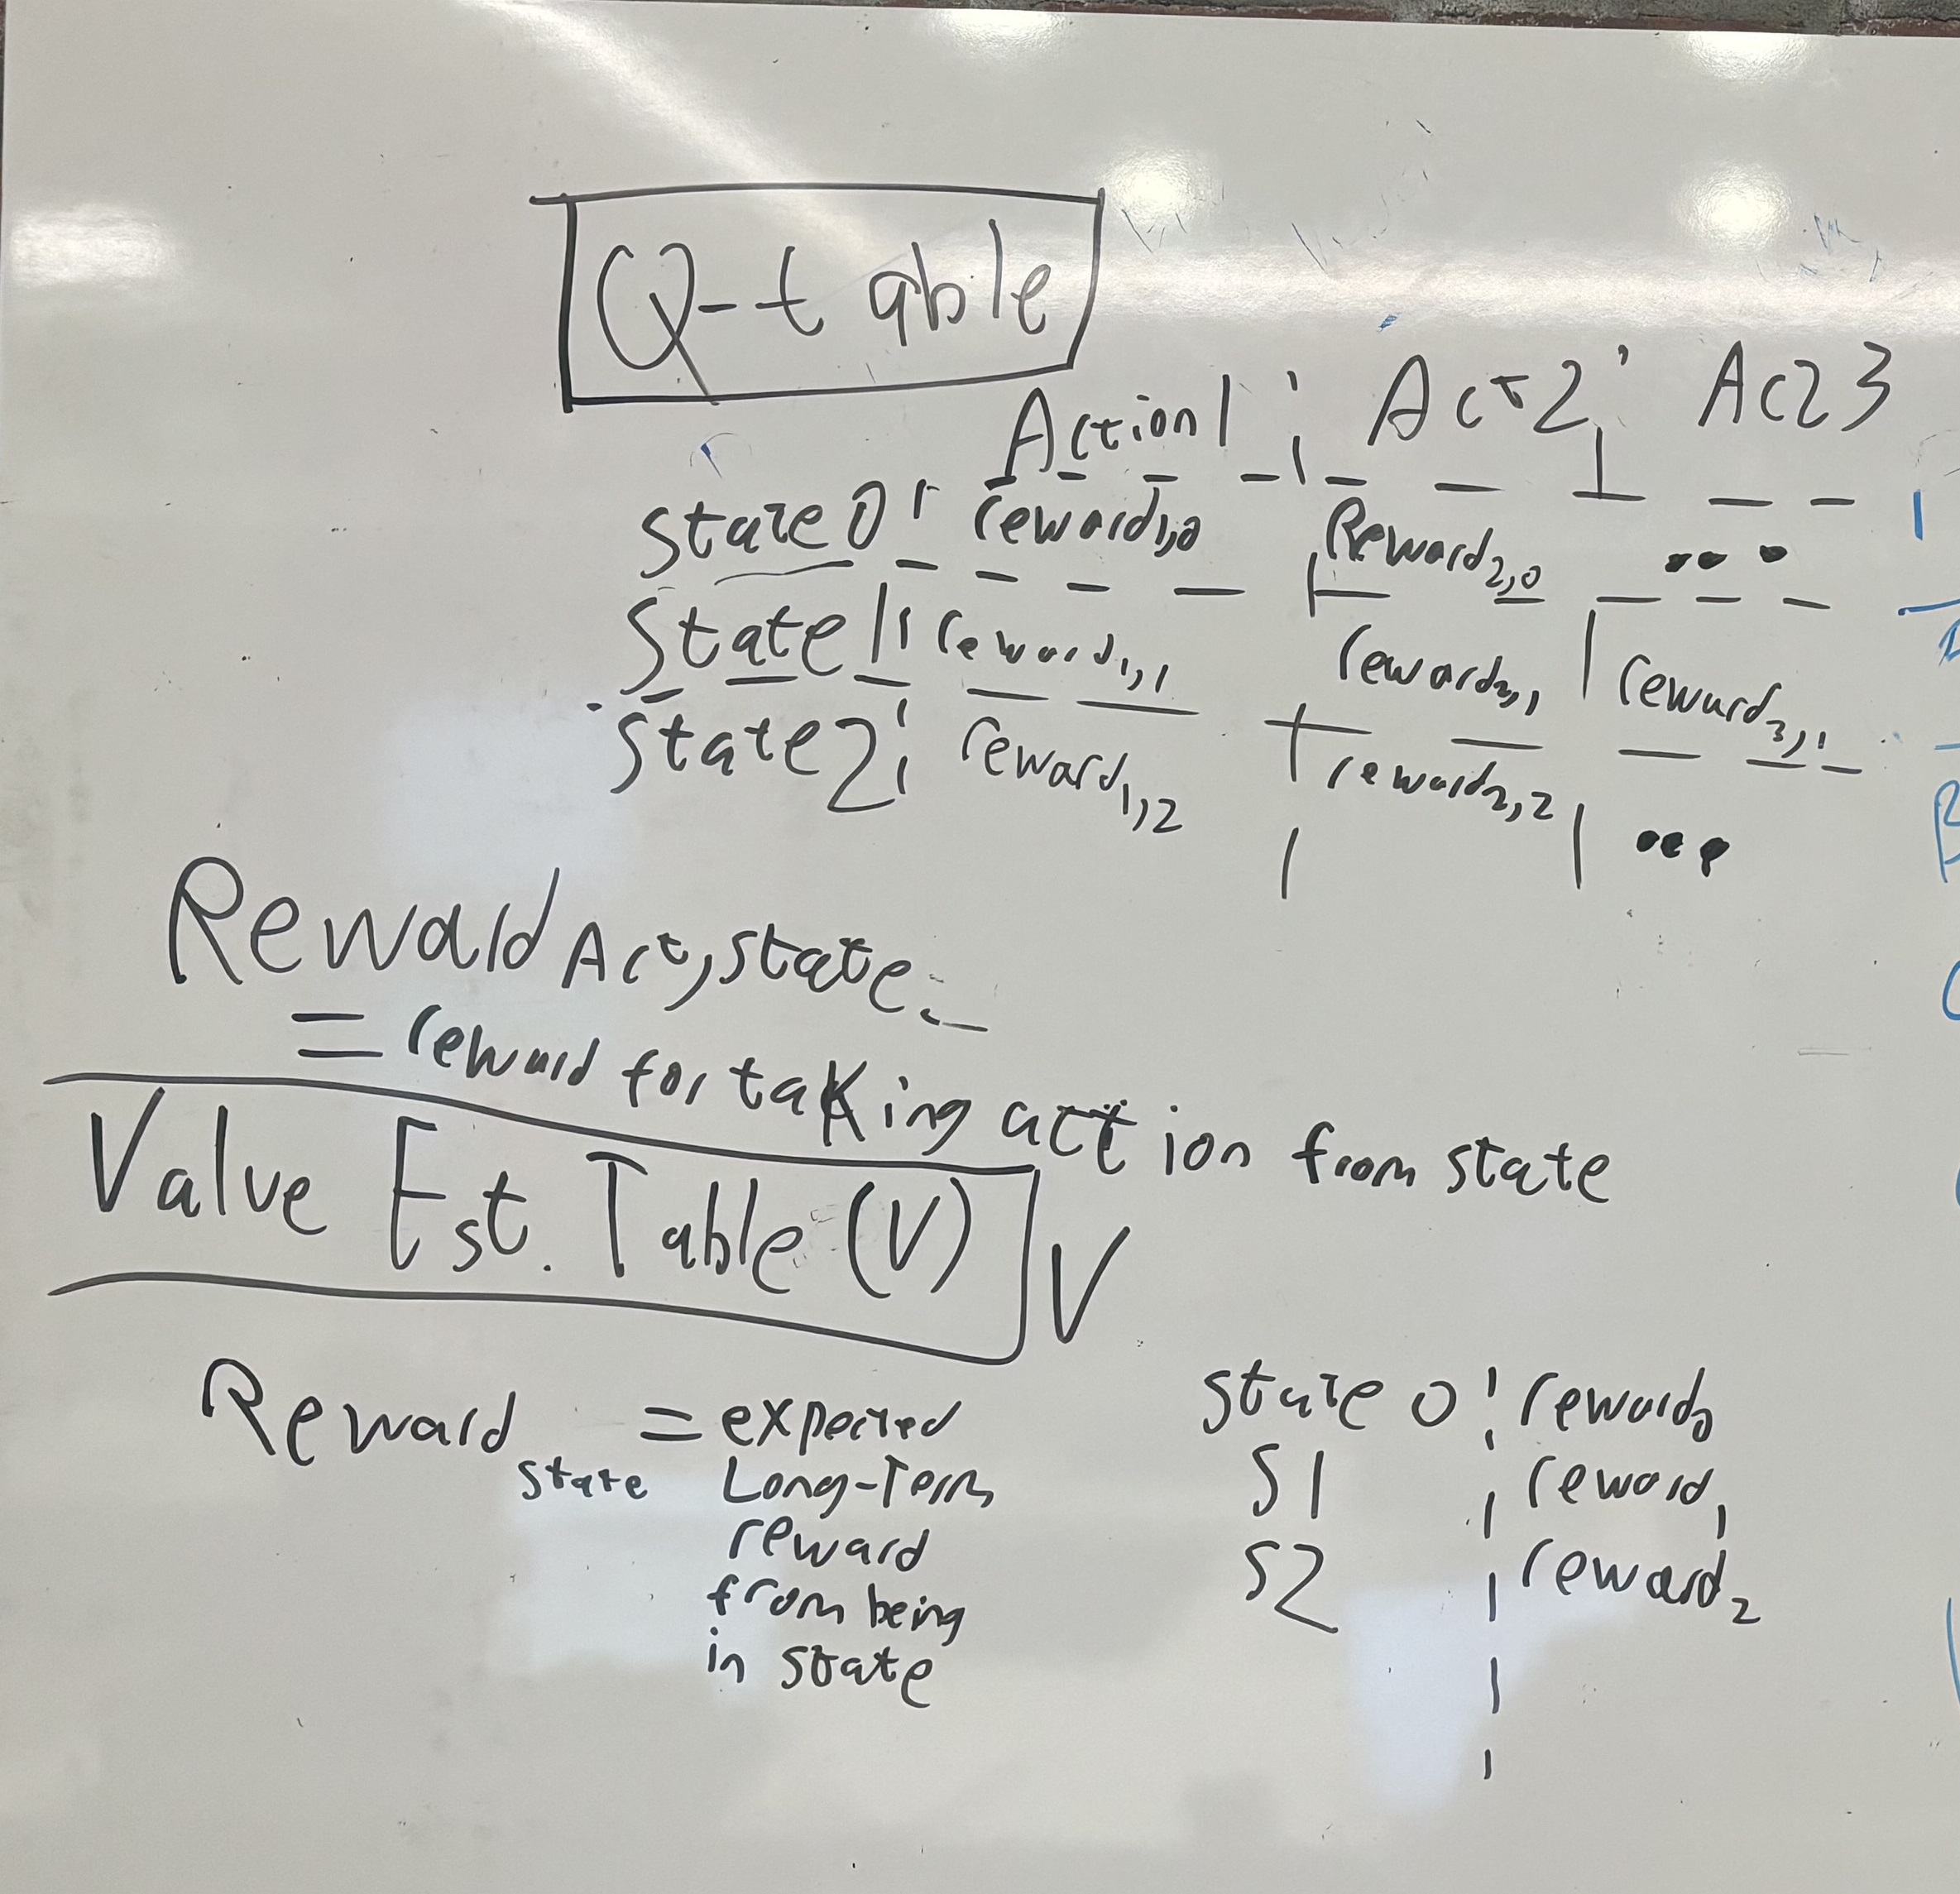 Q-table
Action1 Act2 Act3
state0 reward1,0 Reward2,0 ...
State1 reward1,1 reward2,1 reward3,1
state2 reward1,2 reward2,2 ...
Reward Act,state
= reward for taking action from state
Value Est. Table (V) V
Reward state = expected
Long-Term
reward
from being
in state
state 0 reward0
S1 reward1
S2 reward2